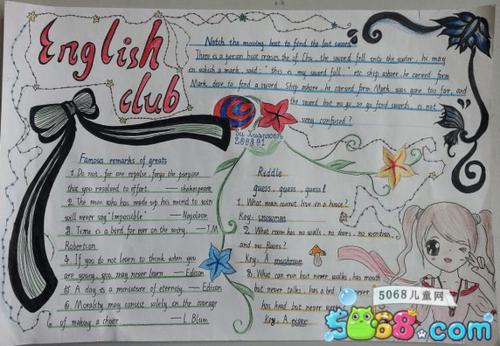 English
club
Notch the moving boat to find the lost sword
There is a person boat crosses the of Chu, the sword fell into the water, he may
in which a mark, said: "this is my sword fell." etc ship where he carved form
Mark, dove to find a sword. Ship where he carved form Mark was gone too far, and
the sword but no go, so go find swords, is not
very confused?
Famous remarks of greats
1. Do not, for one repulse, forgo the purpose
that you resolved to effort. — shakespeare
2. The man who has made up his mind to win
will never say "Impossible" — Napoleon
3. Time is a bird for ever on the wing. — T.W.
Robertson
4. If you do not learn to think when you
are young, you may never learn — Edison
5. A day is a miniature of eternity — Edison
6. Morality may consist solely in the courage
of making a choice — L. Blum
Riddle
guess, guess, guess!
1. What man cannot live in a house?
Key: snowman
2. What room has no walls, no doors, no windows,
and no floors?
Key: A mushroom
3. What can run but never walks, has mouth
but never talks, has a bed
has head but never
Key: A river
5068儿童网
5068.com